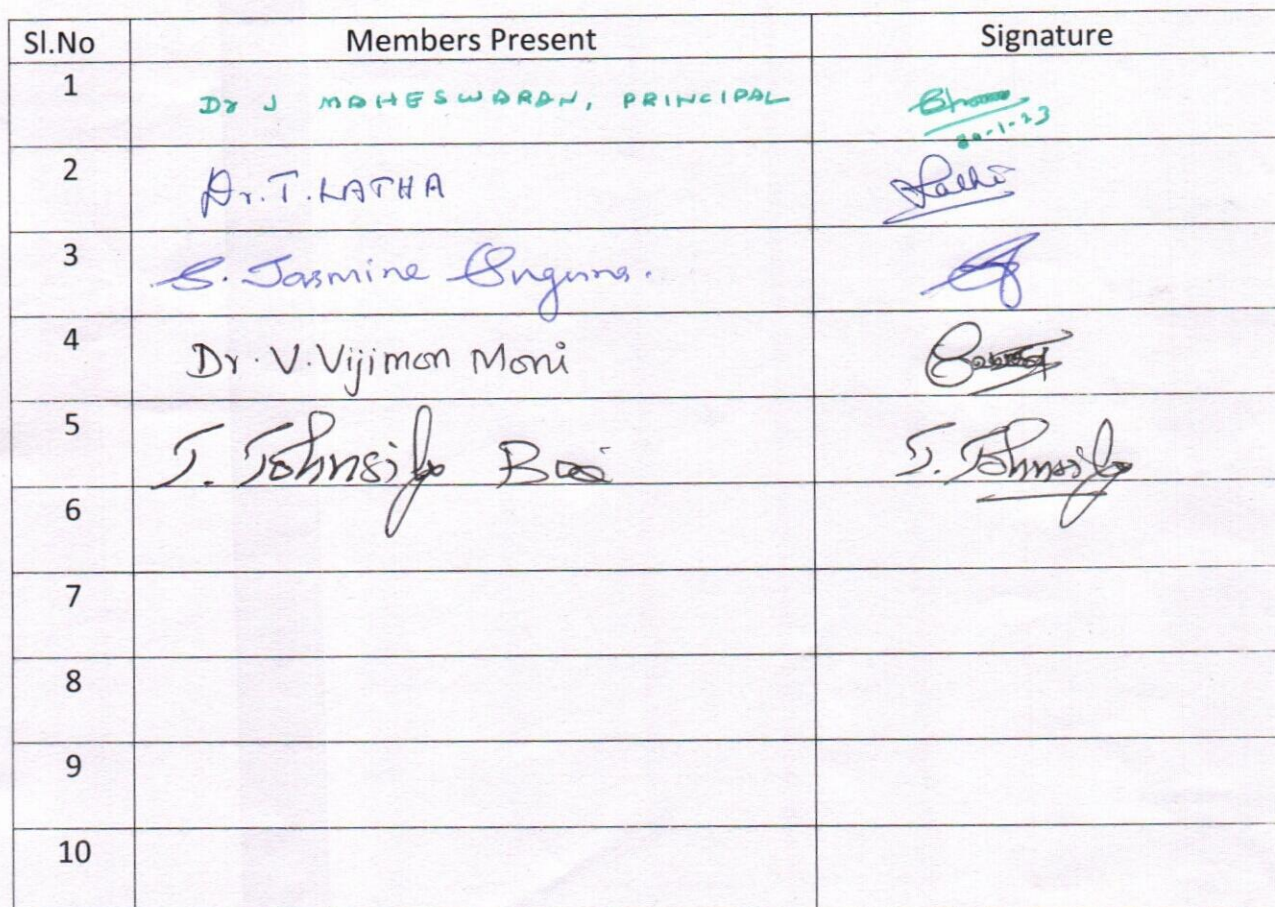 Sl.No Members Present Signature
1 Dr J MAHESWARAN, PRINCIPAL
30-1-23
2 Dr. T. LATHA Latha
3 S. Jasmine
4 Dr. V. Vijimon Moni
5 J. Bai J.
6
7
8
9
10